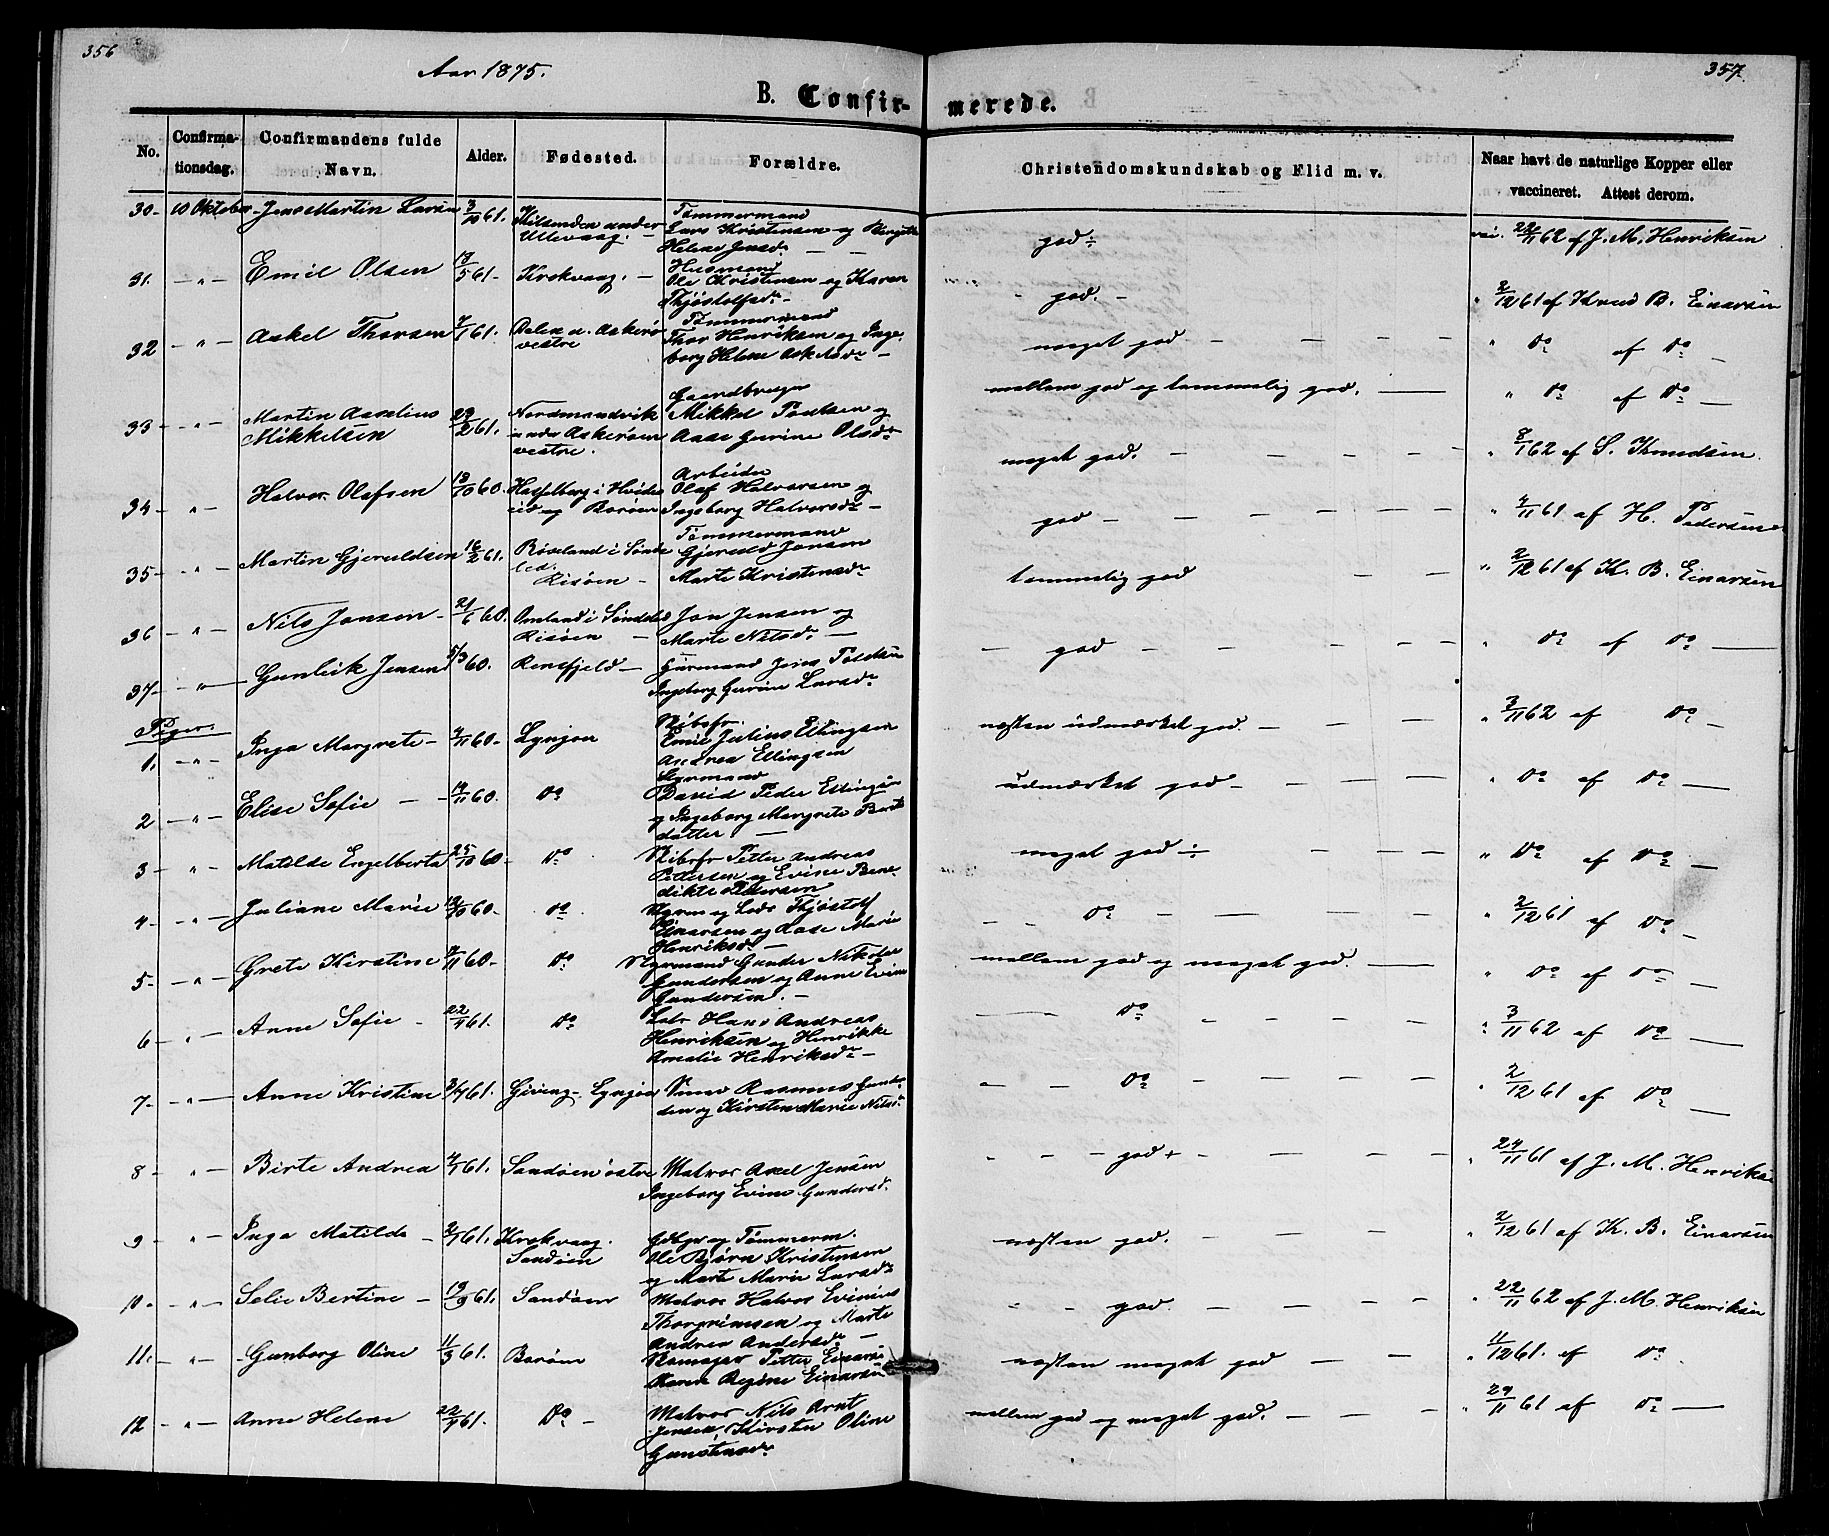 356
Aar 1875.
357
B. Confirmerede.
No.
Confirmationsdag.
Confirmandens fulde Navn.
Alder.
Fødested.
Forældre.
Christendomskundskab og Flid m. v.
Naar havt de naturlige Kopper eller vaccineret. Attest derom.
30 - 10 Oktober - Jens Martin Larsen 3/10 61.
Ullevaag. -
Tømmermand
Lars Kristensen og
Helene Jensd.
god ÷
22/11 62 af J. M. Henriksen
31. - " - Emil Olsen 13/5 61 - Krokvaag. -
Husmand
Ole Kristensen og Karen
Thjøstelsd. -
god. -
" 2/12 61 af Knud B. Einarsen
32 - " - Askel Thorsen 7/1 61. Dalen u. Askerø
vestre
Tømmermand
Thor Henriksen og Inge-
borg Helene Askelsd. -
meget god -
" Do af Do -
33 - " - Martin Aaselius
Mikkelsen
29/2 61. Nordmandvik
under Askerøen
vestre.
Gaardbruger
Mikkel Poulsen og
Aase Gurine Olsd.
mellem god og temmelig god. -
" Do af Do -
34 - " - Halvor Olafsen 13/10 60. Hasselberg i Hvides
eid og Borøen
Arbeider
Olaf Halvorsen og
Ingeborg Halvorsd. -
meget god. -
" 8/1 62 af S. Knudsen.
35 - " - Martin Gjeruldsen 16/2 61. Røseland i Sønde
led.
Risøen -
Tømmermand
Gjeruld Jensen
Marte Kristensd.
god -
" 4/11 61 af H. Pedersen
36 - " - Nils Jonsen - 21/6 60. Omland i Søndeled
Risøen -
Jon Jensen og
Marte Nilsd. -
temmelig god
" 2/12 61 af K. B. Einarsen
37 - " - Gunleik Jensen 5/3 60. Rensfjeld - Gurmand Jens
Ingeborg Gurine Larsd.
- god -
" Do af Do -
Piger.
1. - " - Inga Margrete - 4/11 60 - Lyngør
Skibsfr.
Emil Julius Ellingsen
Andrea Ellingsen
næsten udmærket god. -
" 3/11 62 af Do -
2 - " - Elise Sofie - 14/11 60. Do
Styrmand
David Peder Ellingsen
og Ingeborg Margrete Berit
datter -
Udmærket god -
" Do af Do -
3 - " - Matilde Engelberta 25/10 60 - Do
Skibsfr Petter Andreas
Pettersen og Evine Bene-
dikte Pedersen
meget god ÷
" Do af Do -
4 - " - Juliane Marie 12/10 60 - Do
Styrm og Lods Thjøstolf
Einarsen og Aase Marie
Henriksd. -
Do -
" 2/12 61 af Do -
5 - " - Grete Kirstine 7/11 60 - Do
Styrmand Gunder Nikolai
Gundersen og Anne Evine
Gundersen. -
mellem god og meget god. -
" Do af Do -
6 - " - Anne Sofie - 22/1 61. Do
Lods Hans Andreas
Henriksen og Henrikke
Amalie Henriksd. -
Do
" 3/11 62 af Do -
7 - " - Anne Kristine 3/4 61. Giving - Lyngør
Smed Rasmus Gunder-
sen og Kirsten Marie Nilsd.
Do -
" 2/12 61 af Do -
8 - " - Birte Andrea 4/1 61. Sandøen østre
Matros Axel Jensen
Ingeborg Evine Gundersd.
- god + -
" 24/11 61 af J. M. Henriksen
9 - " - Inga Matilde - 2/1 61. Krokvaag.
Sandøen
Gdbgr og Tømmerm.
Ole Bjørn Kristensen
og Marte Marie Larsd.
næsten god. -
" 2/12 61 af K. B. Einarsen
10 - " - Selie Bertine - 19/9 61. Sandøen
Matros Halvor Evinius
Thorgrimsen og Marte
Andrea Andersd. -
- god. -
" 22/11 62 af J. M. Henriksen
11. - " - Gunborg Oline 11/3 61. Borøen
Petter Einarsen
Karen Regine Einarsen
næsten meget god -
" 4/12 61. af Do
12 - " - Anne Helene 22/4 61. Do -
Matros Nils Arnt
Jensen, Kirsten Oline
Gunstensd.
mellem god og meget god. -
" 29/11 61 af Do -